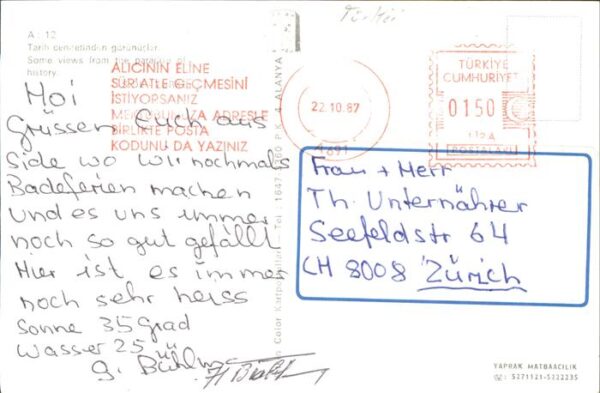 Türkei
A : 12
Tarih cennetinden görünüşler
Some views from the paradise of
history.
ALICININ ELİNE
SÜR'ATLE GEÇMESİNİ
İSTİYORSANIZ
ADRESLE
BİRLİKTE POSTA
KODUNU DA YAZINIZ
22.10.87
TÜRKİYE
CUMHURİYETİ
0150
LİRA
Hoi
Grüssen Euch aus
Side wo wir nochmals
Badeferien machen
und es uns immer
noch so gut gefällt
Hier ist es immer
noch sehr heiss
Sonne 35 Grad
Wasser 25
Color Kartpostal Tel : 1647 P.K. 4 ALANYA
Frau + Herr
Th. Unternährer
Seefeldstr 64
CH 8008 Zürich
YAPRAK MATBAACILIK
☎: 5271121-5222235